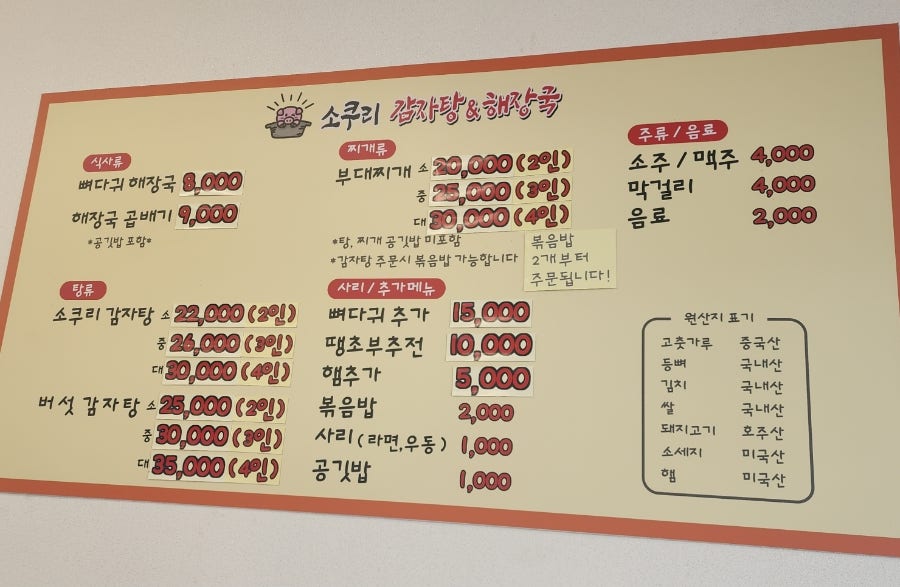 소쿠리 감자탕&해장국
식사류
뼈다귀 해장국 8,000
해장국 곱배기 9,000
*공깃밥 포함*
탕류
소쿠리 감자탕 소 22,000 (2인)
중 26,000 (3인)
대 30,000 (4인)
버섯 감자탕 소 25,000 (2인)
중 30,000 (3인)
대 35,000 (4인)
찌개류
부대찌개 소 20,000 (2인)
중 25,000 (3인)
대 30,000 (4인)
*탕, 찌개 공깃밥 미포함
*감자탕 주문시 볶음밥 가능합니다
볶음밥
2개부터
주문됩니다!
사리/추가메뉴
뼈다귀 추가 15,000
땡초부추전 10,000
햄추가 5,000
볶음밥 2,000
사리(라면,우동) 1,000
공깃밥 1,000
주류/음료
소주/맥주 4,000
막걸리 4,000
음료 2,000
원산지 표기
고춧가루 중국산
등뼈 국내산
김치 국내산
쌀 국내산
돼지고기 호주산
소세지 미국산
햄 미국산